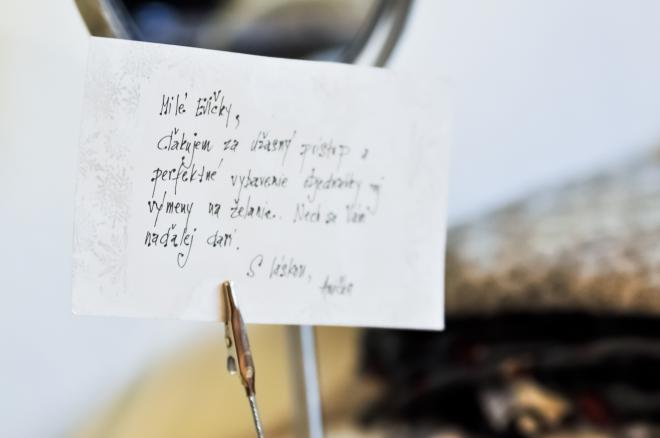 Milé Evičky,
ďakujem za úžasný prístup a
perfektné vybavenie objednávky aj
výmeny na želanie. Nech sa Vám
naďalej darí.
S láskou,